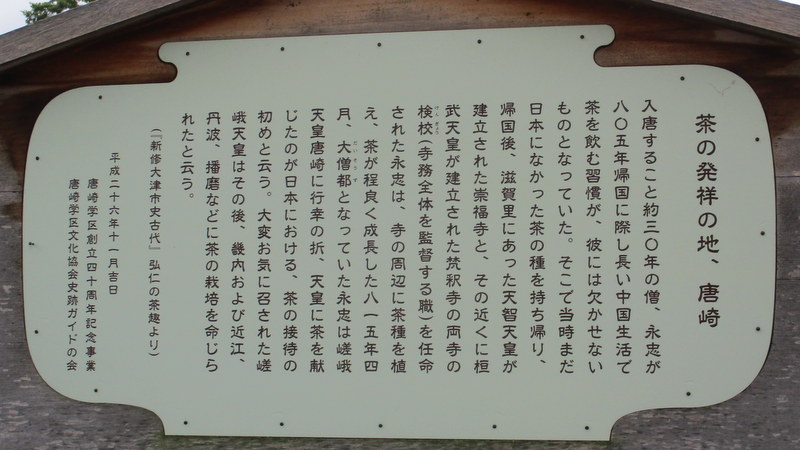 茶の発祥の地、唐崎
入唐すること約三〇年の僧、永忠が
八〇五年帰国に際し長い中国生活で
茶を飲む習慣が、彼には欠かせない
ものとなっていた。そこで当時まだ
日本になかった茶の種を持ち帰り、
帰国後、滋賀里にあった天智天皇が
建立された崇福寺と、その近くに桓
武天皇が建立された梵釈寺の両寺の
検校(寺務全体を監督する職)を任命
された永忠は、寺の周辺に茶種を植
え、茶が程良く成長した八一五年四
月、大僧都となっていた永忠は嵯峨
天皇唐崎に行幸の折、天皇に茶を献
じたのが日本における、茶の接待の
初めと云う。大変お気に召された嵯
峨天皇はその後、畿内および近江、
丹波、播磨などに茶の栽培を命じら
れたと云う。
(『新修大津市史古代』弘仁の茶趣より)
平成二十六年十一月吉日
唐崎学区創立四十周年記念事業
唐崎学区文化協会史跡ガイドの会